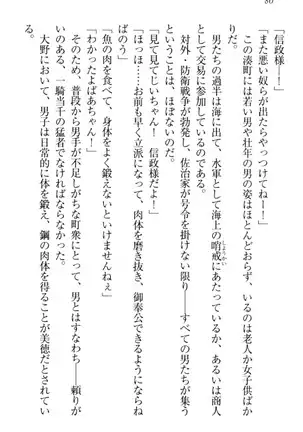 86
「信政様ー！」
「また悪い奴らが出たらやっつけてね ー！」
この湊町には若い男や壮年の男の姿はほとんどおらず、いるのは老人か女子供ばか
りだ。
男たちの過半は海に出て、水軍として海上の哨戒にあたっているか、あるいは商人
として交易に参加しているのだ。
対外・防衛戦争が勃発し、佐治家が号令を掛けない限り――すべての男たちが集う
ということは、ほぼないのだ。
「見て見てじいちゃん！　信政様だよー！」
「ほっほ……お前も早く立派になって、肉体を磨き抜き、御奉公できるようにならね
ばのう」
「魚の肉を食べて、身体をよく鍛えないといけませんねぇ」
「わかったよばあちゃん！」
そのため、普段から男手が不足しがちな町衆にとって、男とはすなわち――頼りが
いのある、一騎当千の猛者でなければならなかった。
大野において、男子は日常的に体を鍛え、鋼の肉体を得ることが美徳だとされてい
る。